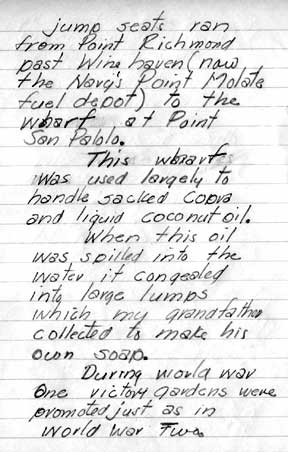 jump seats ran
from Point Richmond
past Wine haven (now
the Navy's Point Molate
fuel depot) to the
wharf at Point
San Pablo.
This wharf
was used largely to
handle sacked Copra
and liquid coconut oil.
When this oil
was spilled into the
water it congealed
into large lumps
which my grandfather
collected to make his
own soap.
During world war
One victory gardens were
promoted just as in
World War Two.